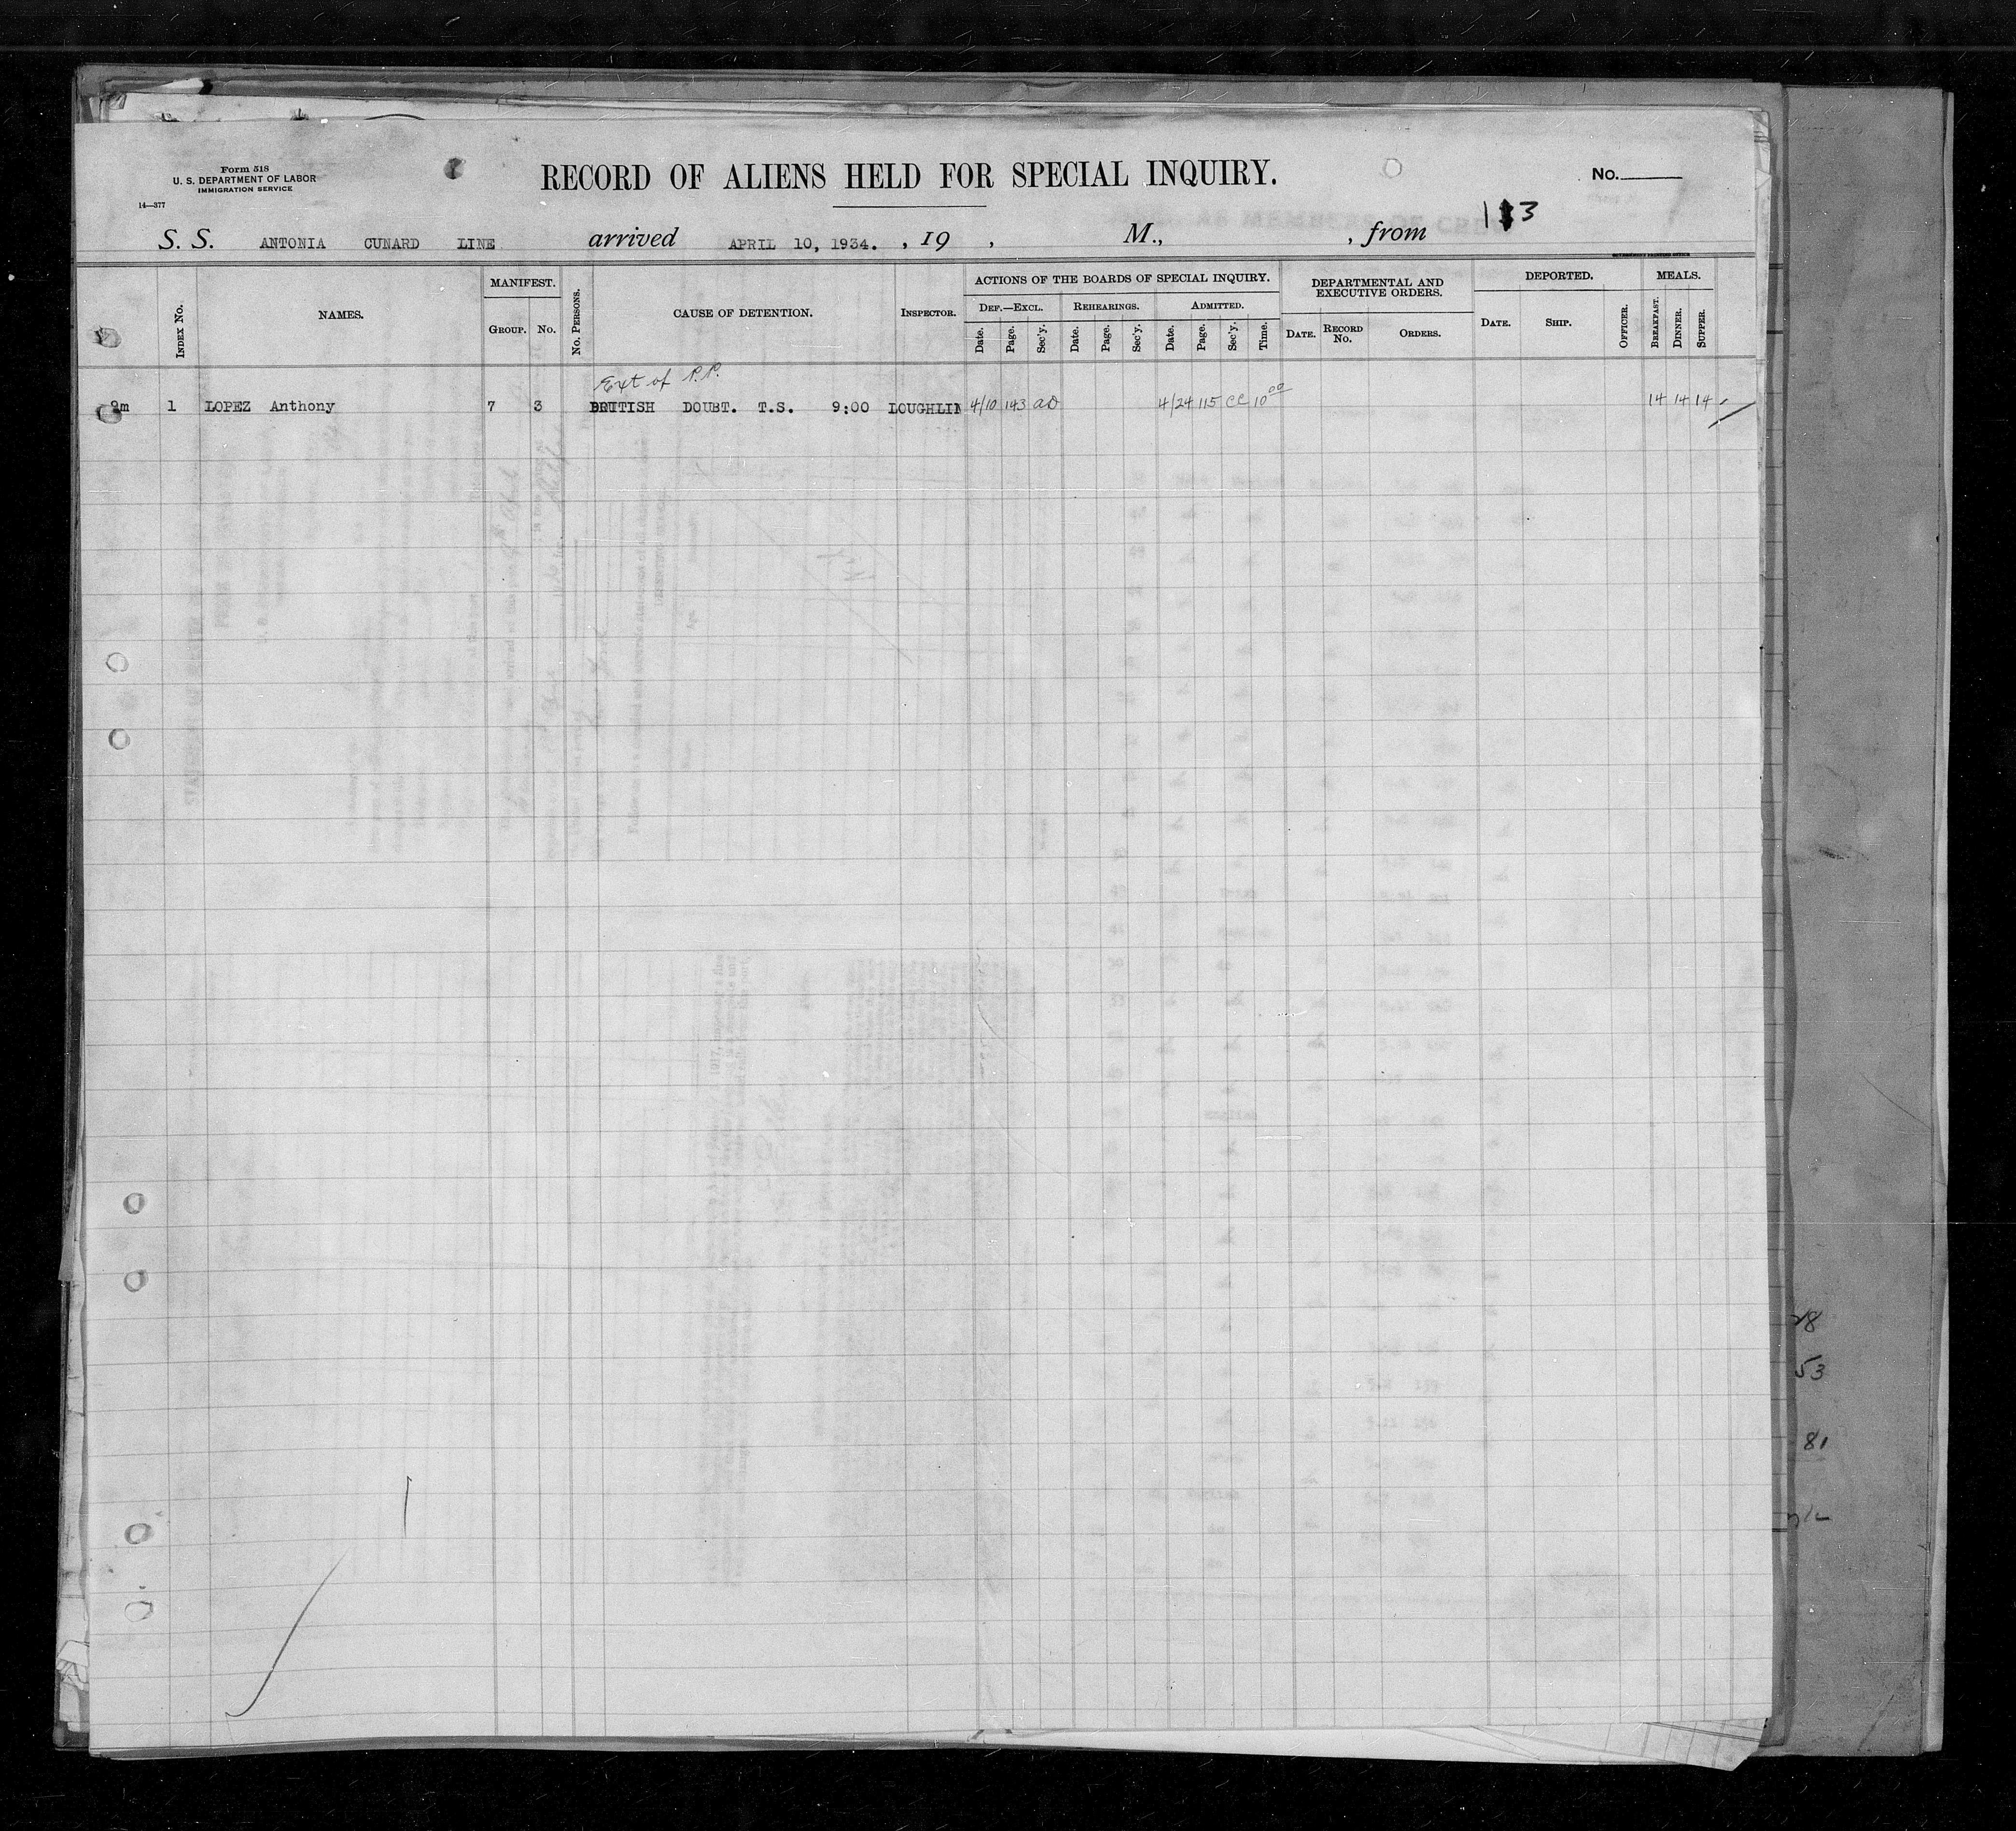 Form 518
U. S. DEPARTMENT OF LABOR
IMMIGRATION SERVICE
14—377
RECORD OF ALIENS HELD FOR SPECIAL INQUIRY.
No.
113
S. S. ANTONIA CUNARD LINE arrived APRIL 10, 1934. , 19 , M., , from
GOVERNMENT PRINTING OFFICE
MANIFEST. ACTIONS OF THE BOARDS OF SPECIAL INQUIRY. DEPARTMENTAL AND EXECUTIVE ORDERS. DEPORTED. MEALS.
Index No. NAMES. Group. No. No. Persons. CAUSE OF DETENTION. Inspector. Def.—Excl. Rehearings. Admitted.
Date. Page. Sec'y. Date. Page. Sec'y. Date. Page. Sec'y. Time. Date. Record No. Orders. Date. Ship. Officer. Breakfast. Dinner. Supper.
Ext of P.P.
9m 1 LOPEZ Anthony 7 3 BRITISH DOUBT. T.S. 9:00 LOUGHLIN 4/10 143 AD 4/24 115 CC 10 00 14 14 14
28
53
81